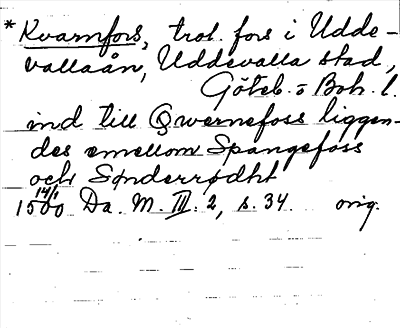 *Kvarnfors, trol. fors i Udde-
vallaån, Uddevalla stad,
Göteb. o Boh. l.
ind till Qwernefoss liggen-
des emellom Spangefoss
och Sønderrødht
1500 14/1 Da. M. III. 2, s. 34. orig.